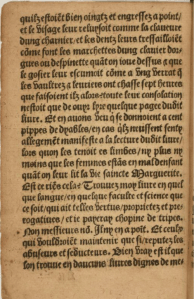 quilz estoiẽt bien oingtz et engressez a point/
et le visage leur reluysoit comme la claueure
dung charnier/ et les dentz leurs tressailloiẽt
comme font les marchettes dung clauier dor-
gues ou despinette quãt on ioue dessus/ & que
le gosier leur escumoit cõme a vng verrat q̃
les vaultrez & leuriers ont chasse sept heures
que faisoient ilz alors: toute leur consolation
nestoit que de ouyr lire quelque page dudit
liure. Et en auons veu q̃ se donnoient a cent
pippes de dyables/ en cas q̃lz neussent senty
allegement manifeste a la lecture dudit liure/
lors quon les tenoit es limbes/ ny plus ny
moins que les femmes estãs en mal denfant
quãt on leur list la vie saincte Marguerite.
Est ce riẽs cela: Trouuez moy liure en quel
que langue/ en quelque faculte et science que
ce soit/ qui ait telles vertus/ proprietez et pre-
rogatiues/ et ie payeray chopine de trippes.
Non messieurs nõ. Il ny en a poĩt. Et ceulx
qui vouldroiẽt maintenir que si/ reputez les
abuseurs et seducteurs. Bien vray est il que
lon trouue en daucuns liures dignes de me-